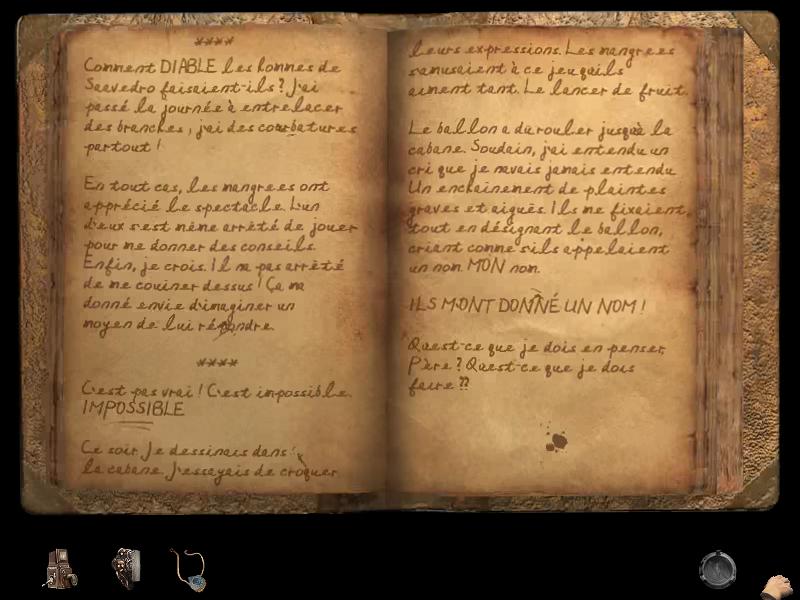 ****
Comment DIABLE les hommes de
Saavedro faisaient-ils ? J'ai
passé la journée à entrelacer
des branches, j'ai des courbatures
partout !
En tout cas, les mangrees ont
apprécié le spectacle. L'un
d'eux s'est même arrêté de jouer
pour me donner des conseils.
Enfin, je crois. Il n'a pas arrêté
de me couiner dessus ! Ça m'a
donné envie d'imaginer un
moyen de lui répondre.
****
C'est pas vrai ! C'est impossible.
IMPOSSIBLE
Ce soir. Je dessinais dans
la cabane. J'essayais de croquer
leurs expressions. Les mangrees
s'amusaient à ce jeu qu'ils
aiment tant. Le lancer de fruit.
Le ballon a dû rouler jusqu'à la
cabane. Soudain, j'ai entendu un
cri que je n'avais jamais entendu.
Un enchainement de plaintes
graves et aiguës. Ils me fixaient,
tout en désignant le ballon,
criant comme s'ils appelaient
un nom. MON nom.
ILS M'ONT DONNÉ UN NOM !
Qu'est-ce que je dois en penser,
Père ? Qu'est-ce que je dois
faire ??